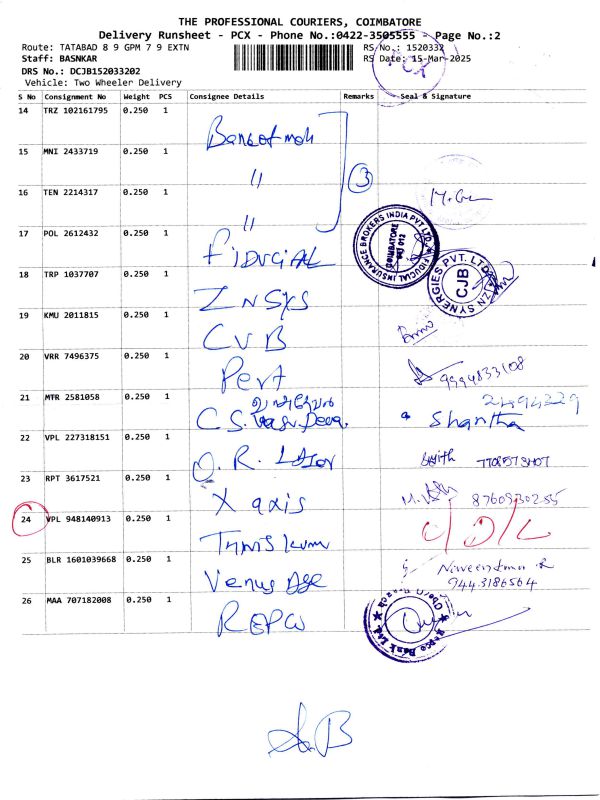 THE PROFESSIONAL COURIERS, COIMBATORE
Delivery Runsheet - PCX - Phone No.:0422-3505555 - Page No.:2
Route: TATABAD 8 9 GPM 7 9 EXTN RS No.: 1520332
Staff: BASNKAR RS Date: 15-Mar-2025
DRS No.: DCJB152033202
Vehicle: Two Wheeler Delivery
S No Consignment No Weight PCS Consignee Details Remarks Seal & Signature
14 TRZ 102161795 0.250 1
15 MNI 2433719 0.250 1 " 3
16 TEN 2214317 0.250 1 "
17 POL 2612432 0.250 1 FIDUCIAL
FIDUCIAL INSURANCE BROKERS INDIA PVT LTD. COIMBATORE 641 012
18 TRP 1037707 0.250 1 ZNSYS
ZN SYNERGIES PVT. LTD. CJB
19 KMU 2011815 0.250 1 CUB
20 VRR 7496375 0.250 1 Pert 9994833108
21 MTR 2581058 0.250 1 C.S. Shantha
22 VPL 227318151 0.250 1
23 RPT 3617521 0.250 1 X axis
24 VPL 948140913 0.250 1 O/D/L
25 BLR 1601039668 0.250 1 Venus Age 9443186564
26 MAA 707182008 0.250 1 REPCO
Repco Bank Ltd